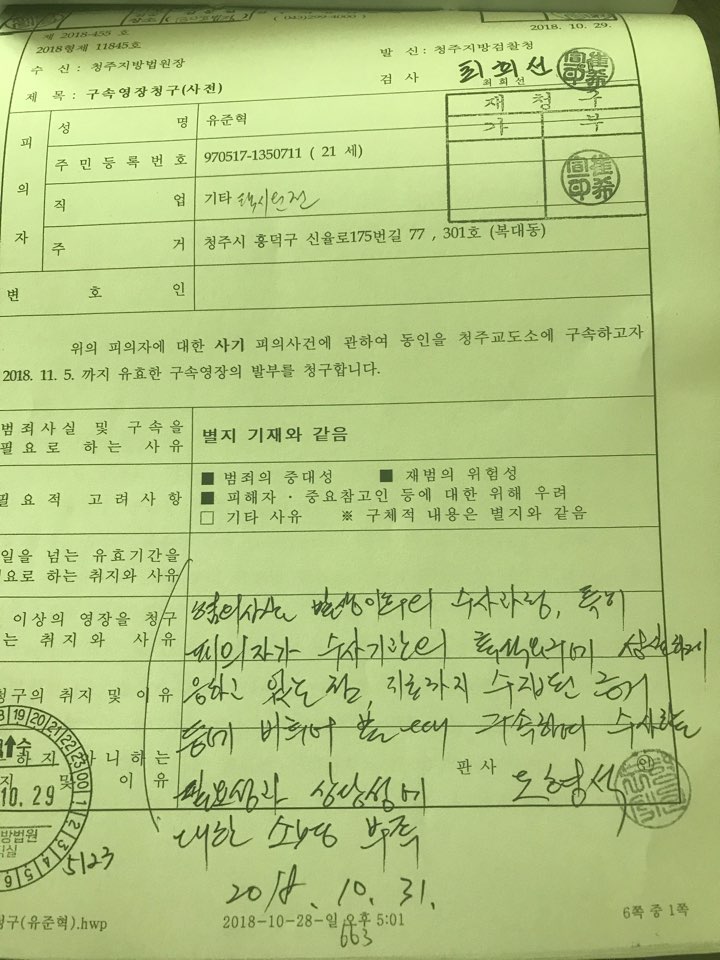 제 2018-455 호
2018. 10. 29.
2018형제 11845호
수 신 : 청주지방법원장
발 신 : 청주지방검찰청
검 사 최희선
최희선
제 목 : 구속영장청구(사전)
재 청 구
가 부
피 의 자
성 명 유준혁
주 민 등 록 번 호 970517-1350711 ( 21 세)
직 업 기타
주 거 청주시 흥덕구 신율로175번길 77 , 301호 (복대동)
변 호 인
위의 피의자에 대한 사기 피의사건에 관하여 동인을 청주교도소에 구속하고자
2018. 11. 5. 까지 유효한 구속영장의 발부를 청구합니다.
범죄사실 및 구속을
필요로 하는 사유
별지 기재와 같음
필요적 고려사항
■ 범죄의 중대성 ■ 재범의 위험성
■ 피해자 · 중요참고인 등에 대한 위해 우려
□ 기타 사유 ※ 구체적 내용은 별지와 같음
일을 넘는 유효기간을
요로 하는 취지와 사유
이상의 영장을 청구
는 취지와 사유
청구의 취지 및 이유
하지 아니하는
지 및 이유
혐의사실 발생이후의 수사과정, 특히
피의자가 수사기관의 출석요구에 성실하게
응하고 있는 점, 지금까지 수집된 증거
등에 비추어 볼 때 구속하여 수사할
필요성과 상당성에
대한 소명 부족
판 사 오형석
2018. 10. 31.
19 20 21 22 23 00 1 2 3 4 5 6
수
10. 29
방법원
5123
청구(유준혁).hwp
2018-10-28-일 오후 5:01
6쪽 중 1쪽
663